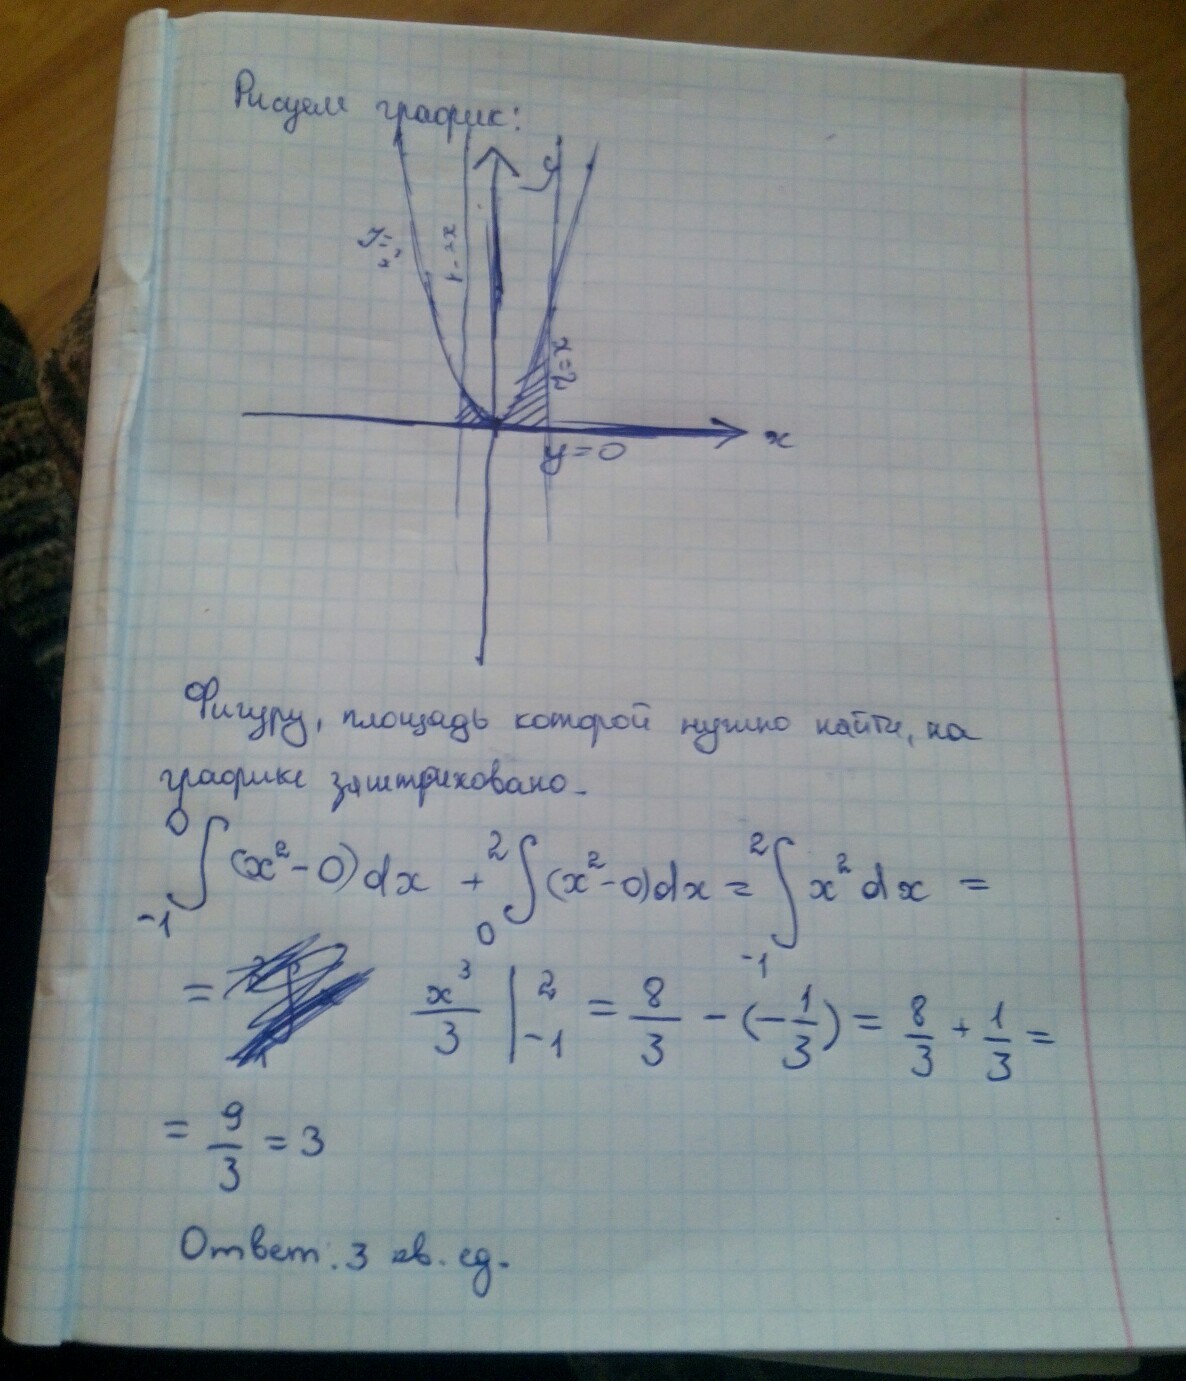 Рисуем график:
y
y=x²
x=-1
x=2
x
y=0
Фигуру, площадь которой нужно найти, на
графике заштриховано.
0∫-1 (x²-0)dx + 2∫0 (x²-0)dx = 2∫-1 x² dx =
= x³/3 |2 -1 = 8/3 - (-1/3) = 8/3 + 1/3 =
= 9/3 = 3
Ответ: 3 кв. ед.